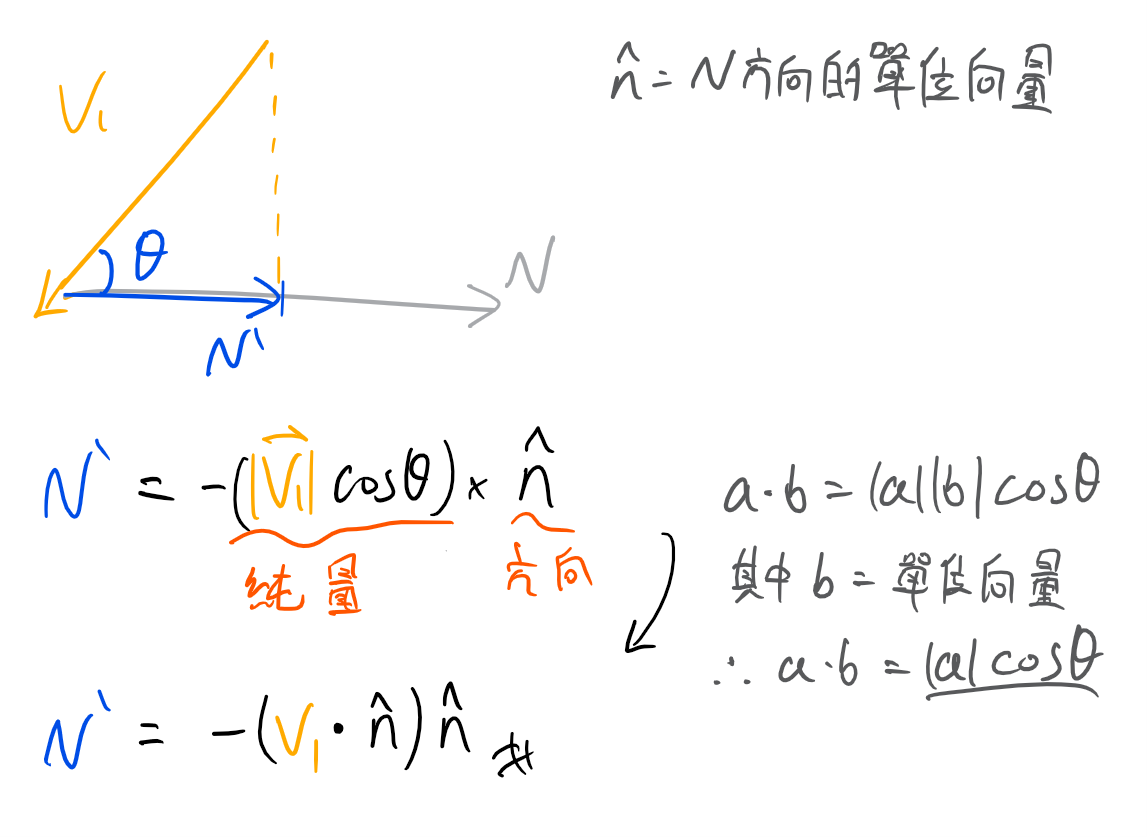 V₁
n̂ = N方向的單位向量
θ
N
N'
N' = -(|V⃗₁| cosθ) × n̂
純量 方向
a·b = |a||b| cosθ
其中 b = 單位向量
∴ a·b = |a| cosθ
N' = -(V₁·n̂)n̂ #